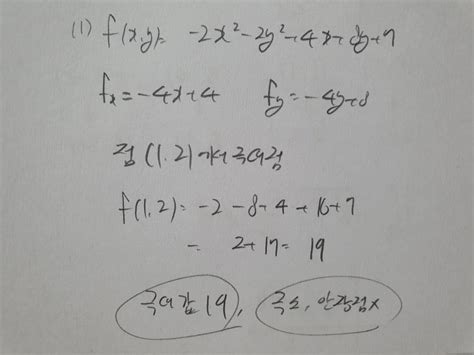 (1) f(x,y)= -2x²-2y²+4x+8y+9
fx=-4x+4 fy=-4y+8
점 (1,2)에서 극대점
f(1,2)= -2-8+4+16+9
= 2+17= 19
극대값 19, 극소, 안장점x